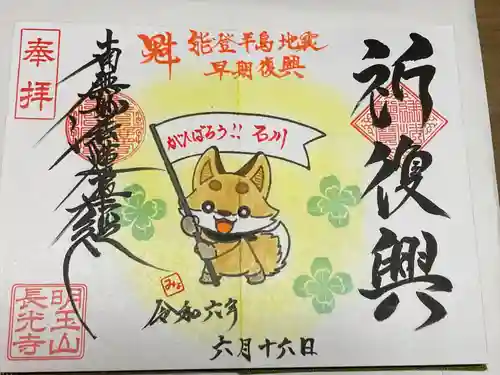 奉拝
魁 能登半島地震
早期復興
祈復興
がんばろう!! 石川
令和六年
六月十六日
明王山
長光寺